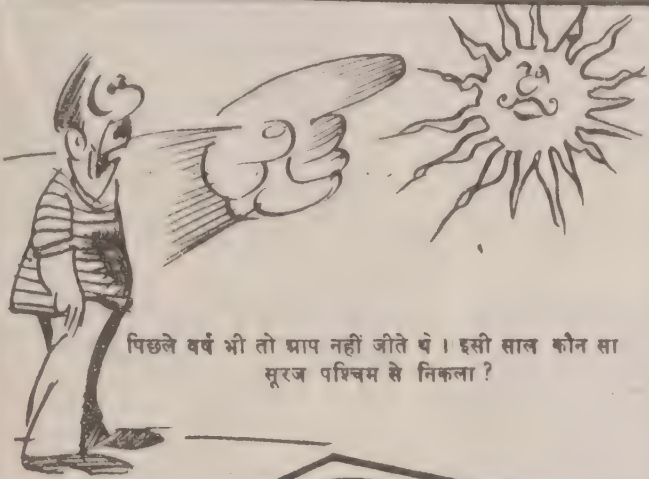 पिछले वर्ष भी तो आप नहीं जीते थे। इसी साल कौन सा
सूरज पश्चिम से निकला?